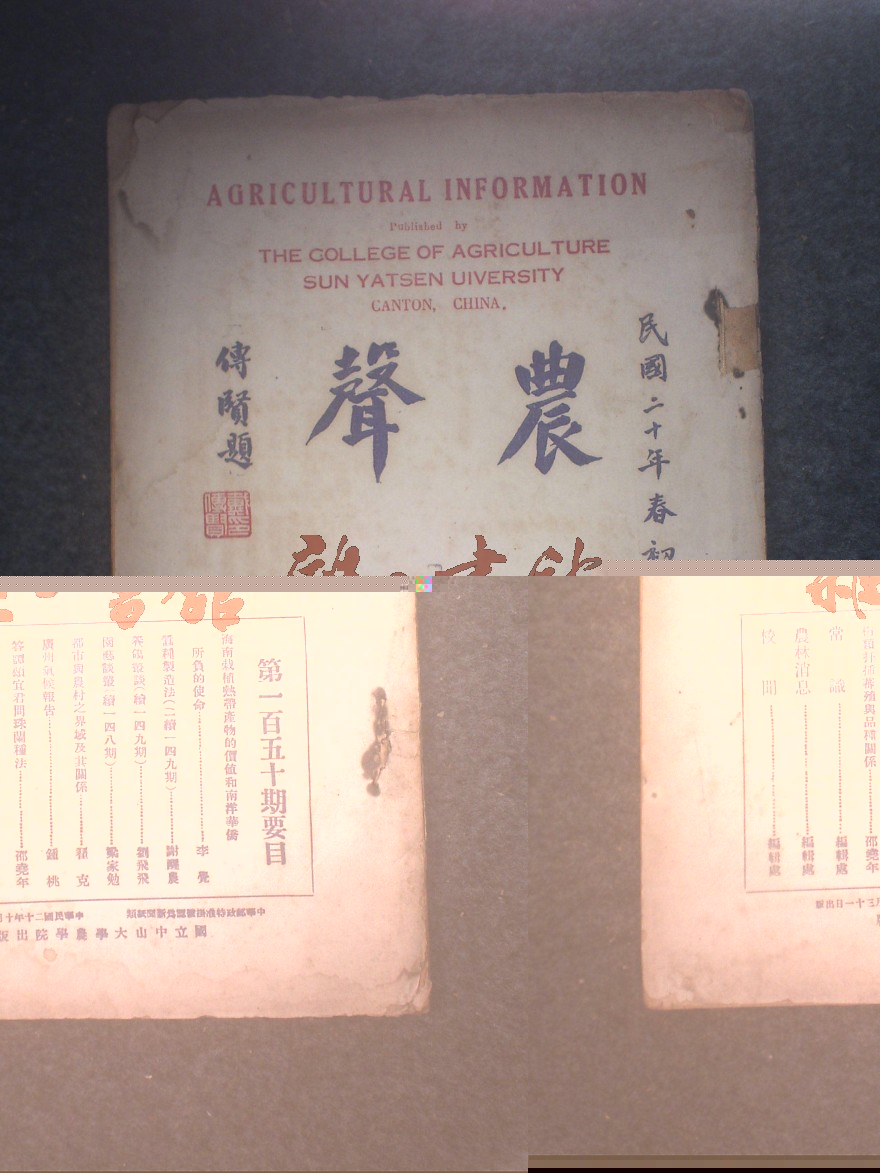 AGRICULTURAL INFORMATION
Published by
THE COLLEGE OF AGRICULTURE
SUN YATSEN UIVERSITY
CANTON, CHINA.
民國二十年春初
農聲
傳賢題
第一百五十期要目
海南栽植熱帶產物的價值和南洋華僑
所負的使命 李覺
蠶種製造法(二續一四九期) 謝醒農
養鴿談(續一四九期) 劉飛飛
園藝談叢(續一四八期) 家勉
都市與農村之界域及其關係 翟克
廣州氣候報告 鍾桃
答譚頌宜君問珠蘭種法 邵堯年
扦插蕃殖與品種關係 邵堯年
常識 編輯處
農林消息 編輯處
校聞 編輯處
中華郵政特准掛號認為新聞紙類
中華民國二十年十月三十一日出版
國立中山大學農學院出版